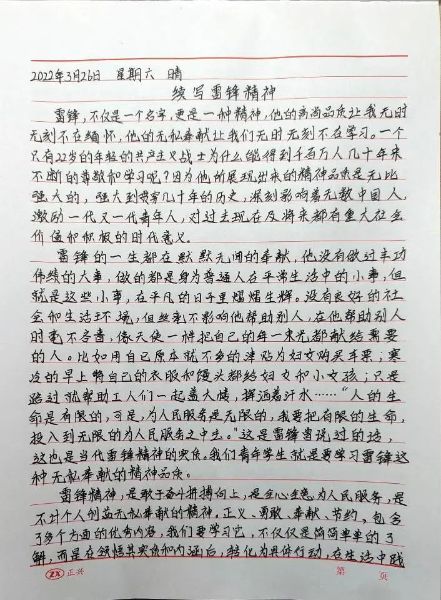 2022年3月26日 星期六 晴
续写雷锋精神
雷锋,不仅是一个名字,更是一种精神,他的高尚品质让我无时
无刻不在缅怀,他的无私奉献让我们无时无刻不在学习。一个
只有22岁的年轻的共产主义战士为什么能得到千百万人几十年来
不断的尊敬和学习呢?因为他所展现出来的精神品质是无比
强大的,强大到贯穿几十年的历史,深刻影响着无数中国人,
激励一代又一代青年人,对过去现在及将来都有重大社会
价值和积极的时代意义。
雷锋的一生都在默默无闻的奉献,他没有做过丰功
伟绩的大事,做的都是身为普通人在平常生活中的小事,但
就是这些小事,在平凡的日子里熠熠生辉。没有良好的社
会和生活环境,但丝毫不影响他帮助别人,在他帮助别人
时毫不吝啬,像天使一样把自己的每一束光都献给需要
的人。比如用自己原本就不多的津贴为妇女购买车票;寒
冷的早上将自己的衣服和馒头都给妇女和小女孩;只是
路过就帮助工人们一起盖大楼,挥洒着汗水……“人的生
命是有限的,可是,为人民服务是无限的,我要把有限的生命,
投入到无限的为人民服务之中去。”这是雷锋曾说过的话,
这也是当代雷锋精神的实质。我们青年学生就是要学习雷锋这
种无私奉献的精神品质。
雷锋精神,是敢于奋斗拼搏向上,是全心全意为人民服务,是
不计个人创益无私奉献的精神。正义、勇敢、奉献、节约,包含
了多个方面的优秀内容,我们要学习它,不仅仅是简简单单的了
解,而是在领悟其实质和内涵后,转化为具体行动,在生活中践
ZX 正兴 第 页